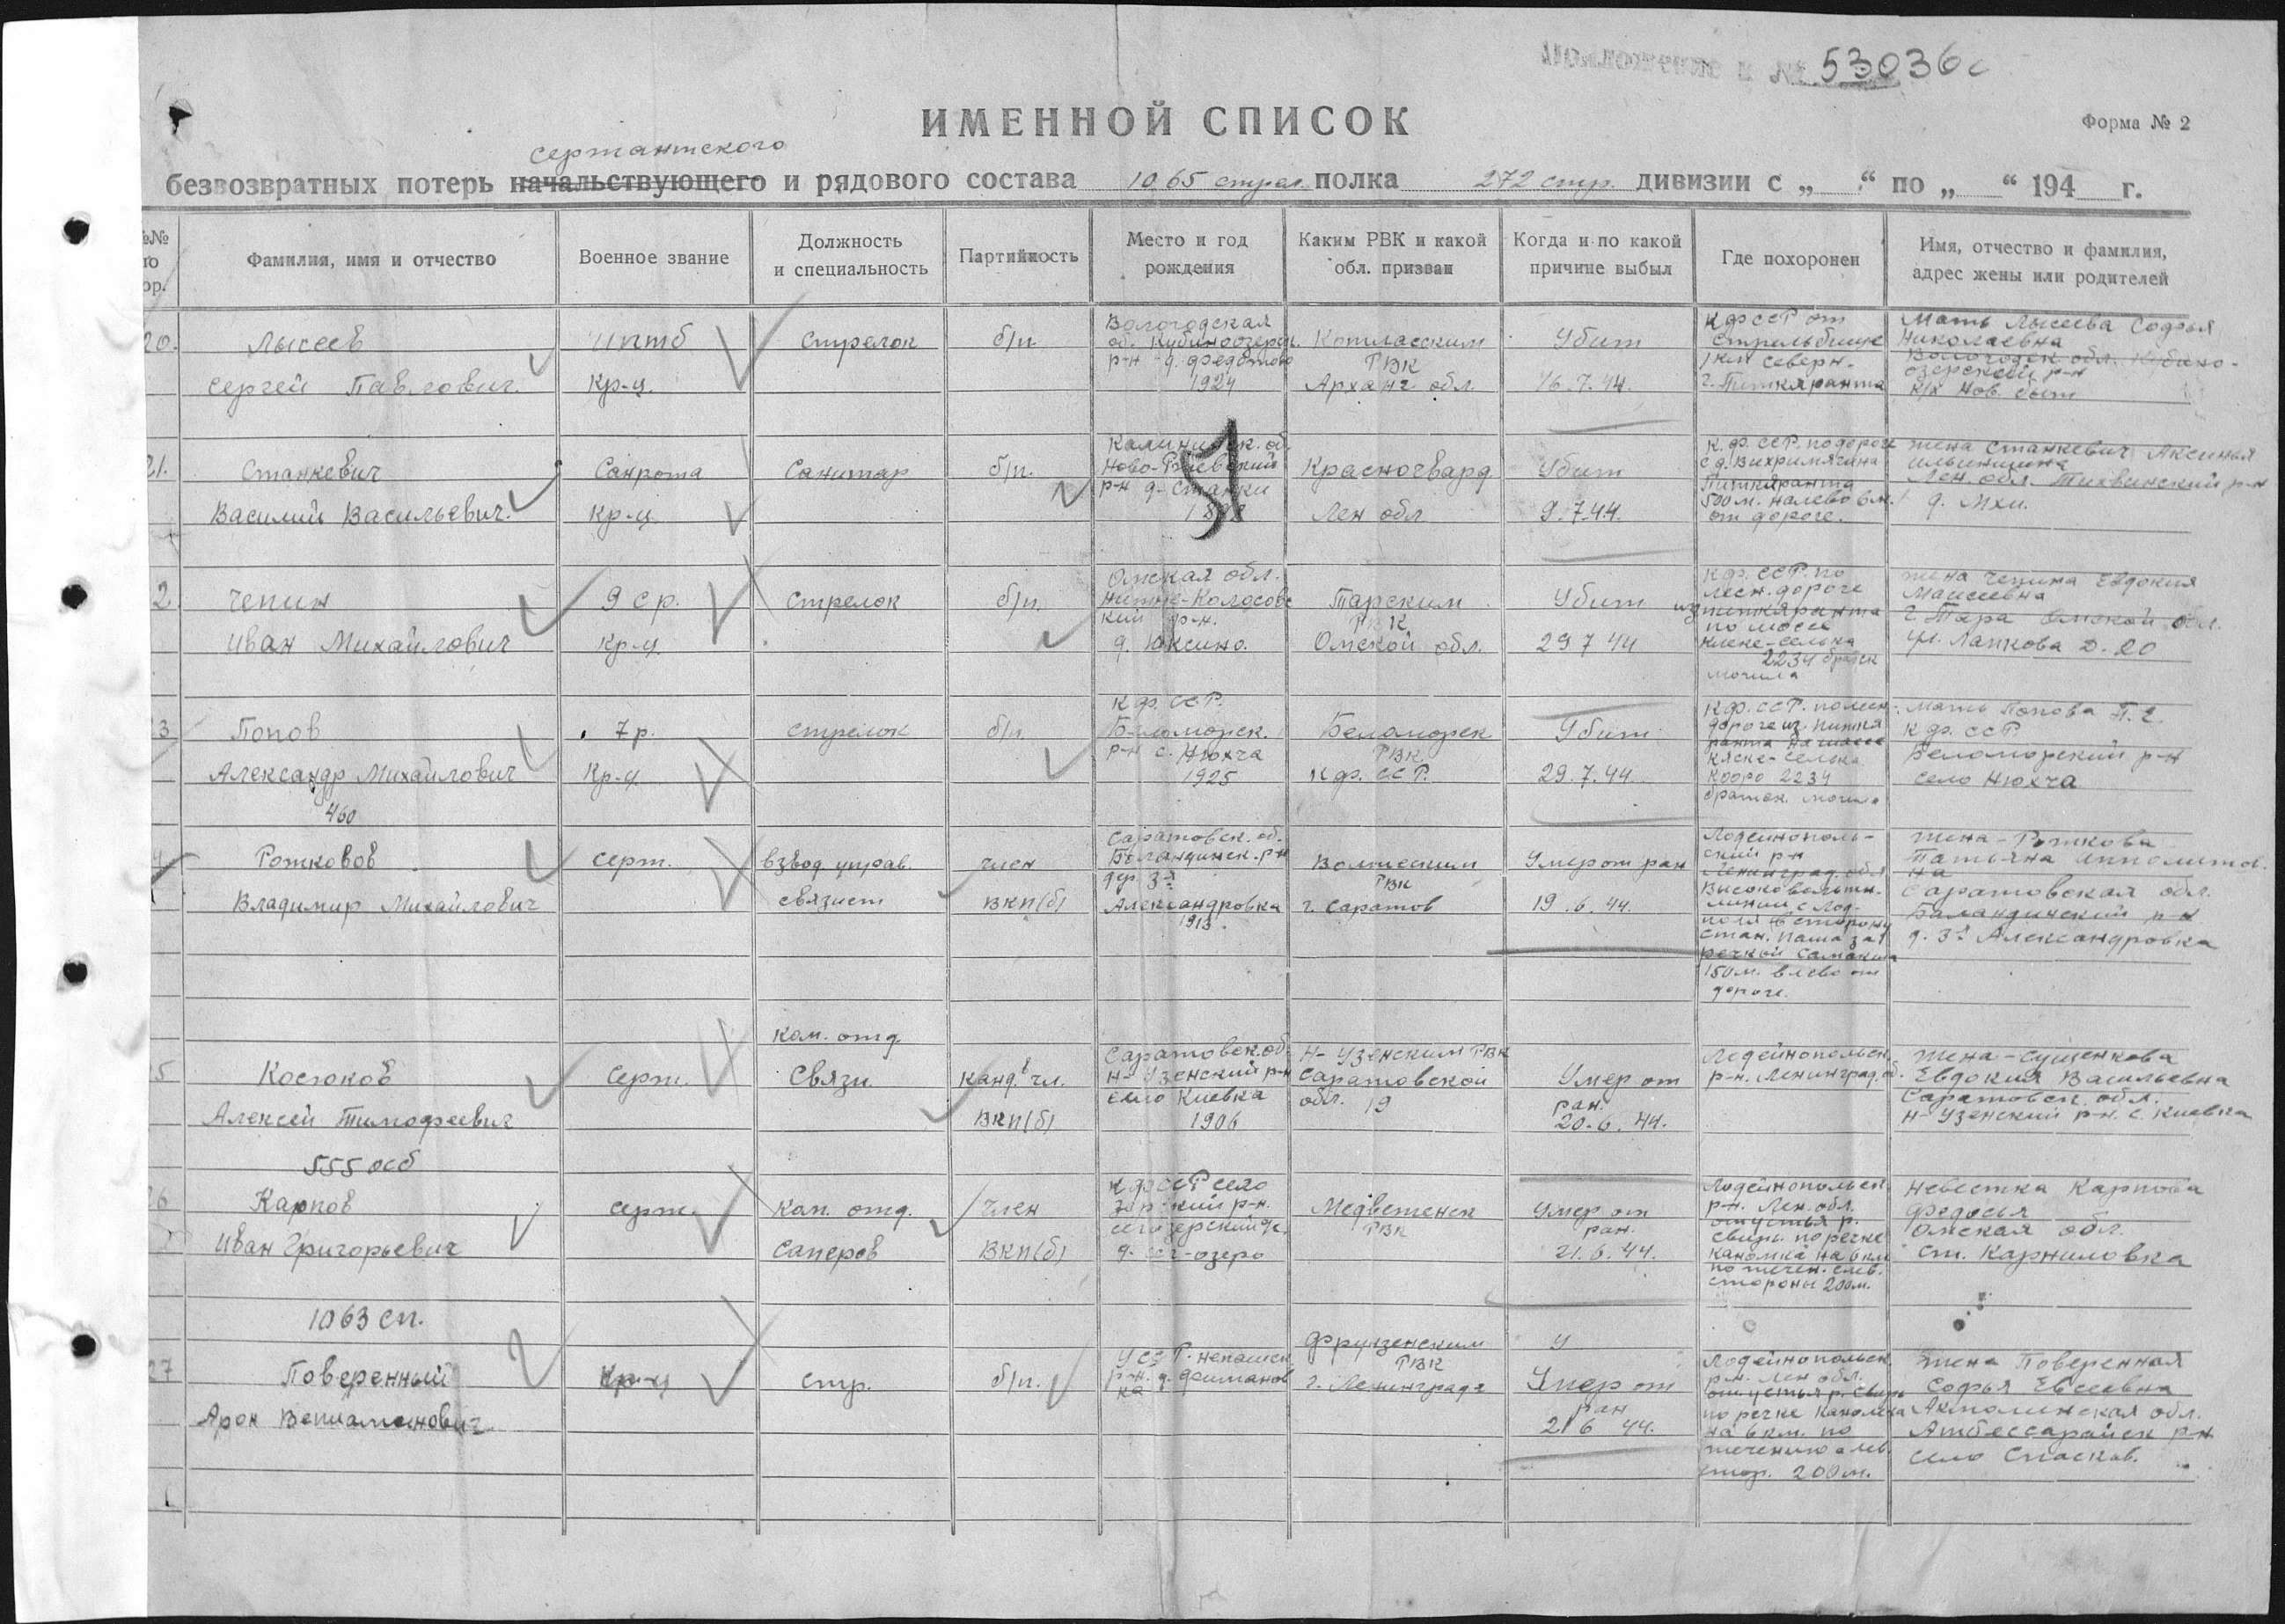 Приложение к № 53036с
ИМЕННОЙ СПИСОК
Форма № 2
сержантского
безвозвратных потерь начальствующего и рядового состава 1065 стрел. полка 272 стр. дивизии с „ “ по „ “ 194 г.
№№ по пор.
Фамилия, имя и отчество
Военное звание
Должность и специальность
Партийность
Место и год рождения
Каким РВК и какой обл. призван
Когда и по какой причине выбыл
Где похоронен
Имя, отчество и фамилия, адрес жены или родителей
20.
Лысеев
Сергей Павлович.
иптб
кр-ц.
Стрелок
б/п.
Вологодская
об. Кубиноозерск.
р-н д. Федотово
1924
Котласским
РВК
Арханг обл.
Убит
16.7.44.
КфССР от
Стрельбище
1 км северн.
г. Питкяранта
Мать Лысеева Софья
Николаевна
Вологодск. обл. Кубино-
озерский р-н
к/х Нов. быт
21.
Станкевич
Василий Васильевич.
Санрота
Кр-ц
Санитар
б/п.
Калининск. об.
Ново-Ржевский
р-н д. Станки
Красногвард
Лен обл
Убит
9.7.44.
К.ф. ССР. по дороге
Питкяранта
500 м. налево
от дороге.
жена Станкевич Аксинья
Ильинична
Лен. обл. Тихвинский р-н
д. Мхи.
2
Чепин
Иван Михайлович
9 ср.
кр-ц
Стрелок
б/п.
Омская обл.
Нижне-Колосовс
кий р-н.
д. Юксино.
Тарским
РВК
Омской обл.
Убит
29 7 44
Кф. ССР. по
лесн. дороге
из питкяранта
по шоссе
2234 братск
могила
жена Чепина Евдокия
Моисеевна
г. Тара Омской обл.
ул. Лапкова д. 20
3
Попов
Александр Михайлович
7 р.
Кр-ц
стрелок
б/п.
К.ф. ССР.
Беломорск.
р-н с. Нюхча
1925
Беломорск
РВК
К.ф. ССР.
Убит
29.7.44.
Кф. ССР. по лесн.
дороге из питкя
ранта на шоссе
Кяске-Селька
2234
братск. могила
мать Попова П. Е.
К фр. ССР
Беломорский р-н
село Нюхча
460
Рожковов
Владимир Михайлович
серж.
взвод управ.
связист
член
ВКП(б)
Саратовск. об.
Баландинск. р-н
дер. 3-я
Александровка
1913.
Волжским
РВК
г. Саратов
Умер от ран
19.6.44.
Лодейнополь-
ский р-н
Ленинград. обл
Высоковольтн.
линии с Лод-
поля в сторону
стан. Паша за
речкой
150 м. влево от
дороге.
жена - Рожкова
Татьяна Ипполитов
на
Саратовская обл.
Баландинский р-н
д. 3я Александровка
5
Косюков
Алексей Тимофеевич
серж.
ком. отд
Связи
канд. в чл.
ВКП(б)
Саратовск. об.
Н-Узенский р-н
село Киевка
1906
Н-Узенским РВК
Саратовской
обл. 19
Умер от
ран.
20.6.44.
Лодейнопольск.
р-н. Ленинград. об.
жена - Сущенкова
Евдокия Васильевна
Саратовск. обл.
Н-Узенский р-н. с. Киевка
555 осб
26
Карпов
Иван Григорьевич
серж.
Ком. отд.
Саперов
Член
ВКП(б)
КфССР
д. Сег-озеро
Медвеженск
РВК
Умер от
ран.
21.6.44.
Лодейнопольск.
р-н. Лен. обл.
от устья р.
Свирь по речке
Каномка на 6 км
по течен. лев.
стороны 200 м.
невестка Карпова
Федосья
Омская обл.
ст. Карниловка
1063 сп.
27
Поверенный
Арон Вениаминович
Кр-ц
стр.
б/п.
УССР.
Фрунзенским
РВК
г. Ленинграда
У
Умер от
ран
21 6 44.
Лодейнопольск.
р-н. Лен обл.
от устья р. Свирь
по речке Каномка
на 6 км. по
течению а лев.
стор. 200 м.
жена Поверенная
Софья Евсеевна
Акмолинская обл.
Атбессарайск р-н
село Спасков.